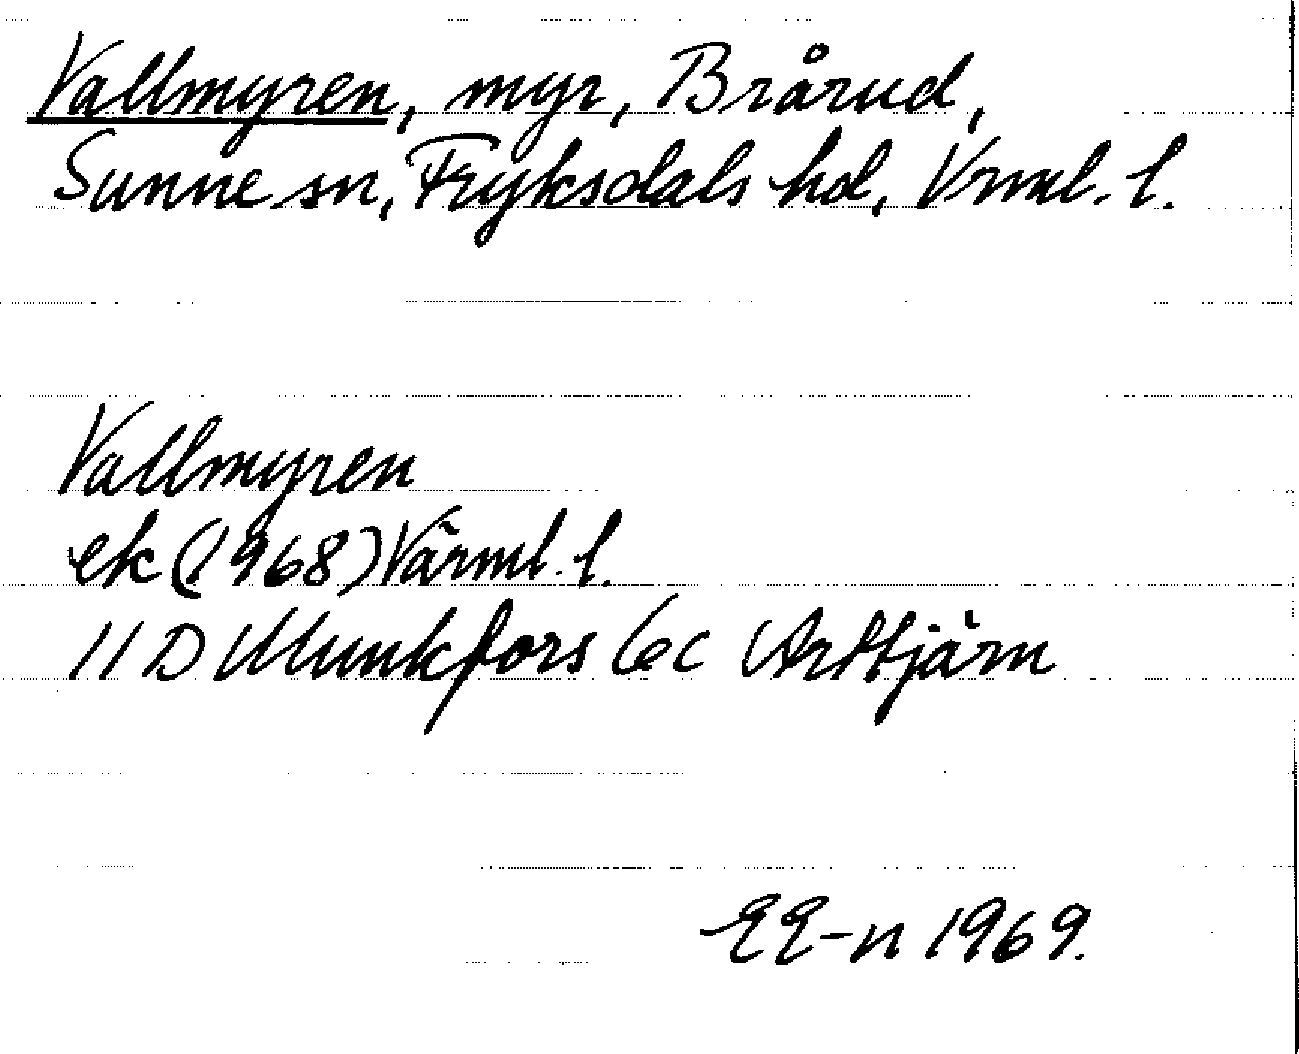 Vallmyren, myr, Brårud,
Sunne sn, Fryksdals hd, Vrml. l.
Vallmyren
ek (1968) Värml. l.
11 D Munkfors 6c Arttjärn
EE-n 1969.